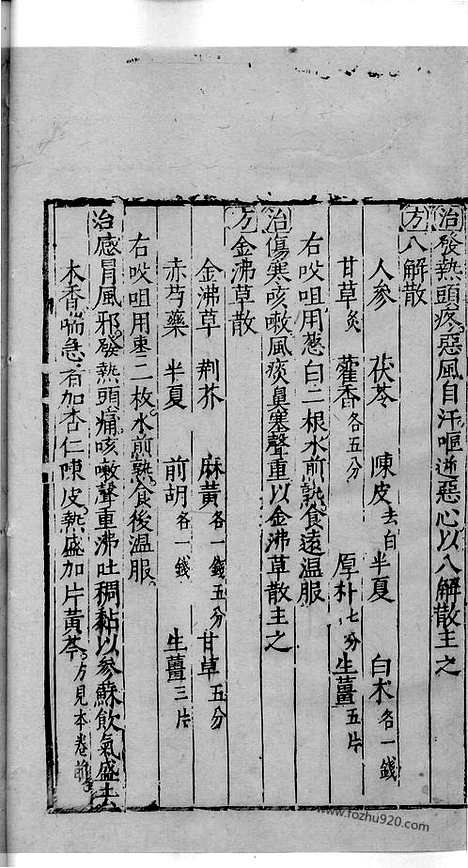 治發熱頭疼惡風自汗嘔逆惡心以八解散主之
方八解散
人參 茯苓 陳皮去白 半夏 白朮各一錢
甘草炙 藿香各五分 厚朴七分 生薑五片
右㕮咀用葱白二根水煎熟食遠溫服
治傷寒咳嗽風痰鼻塞聲重以金沸草散主之
方金沸草散
金沸草 荆芥 麻黃各一錢五分 甘草五分
赤芍藥 半夏 前胡各一錢 生薑三片
右㕮咀用棗二枚水煎熟食後溫服
治感冒風邪發熱頭痛咳嗽聲重沸吐稠黏以參蘇飲氣盛去
木香喘急者加杏仁陳皮熱盛加片黃芩方見本卷前
www.fozhu920.com